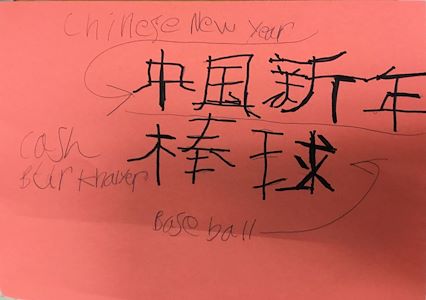 Chinese New Year
中国新年
棒球
cash
Base ball